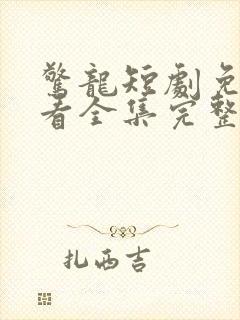 驚龍短劇免
看全集完整
扎西吉